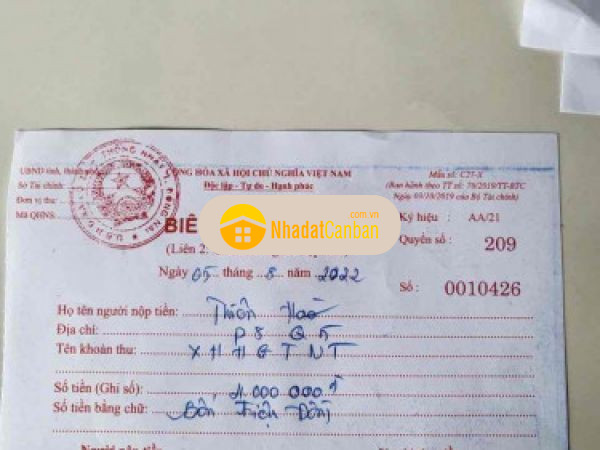 UBND tỉnh, thành
CỘNG HÒA XÃ HỘI CHỦ NGHĨA VIỆT NAM
Mẫu số: C27-X
Sở Tài chính:
Độc lập - Tự do - Hạnh phúc
(Ban hành theo TT số: 70/2019/TT-BTC
Đơn vị thu:
Ngày 03/10/2019 của Bộ Tài chính)
Mã QHNS:
THỐNG NHẤT
ĐỒNG NAI
BIÊ
.com.vn
NhadatCanban
Ký hiệu : AA/21
(Liên 2:
Quyển số: 209
Ngày 05 tháng 8 năm 2022
Số : 0010426
Họ tên người nộp tiền: Thiên
Địa chỉ: P8 Q5
Tên khoản thu: XHHGTNT
Số tiền (Ghi số): 4.000 000đ
Số tiền bằng chữ: Bốn Triệu Đồng
Người nộp tiền